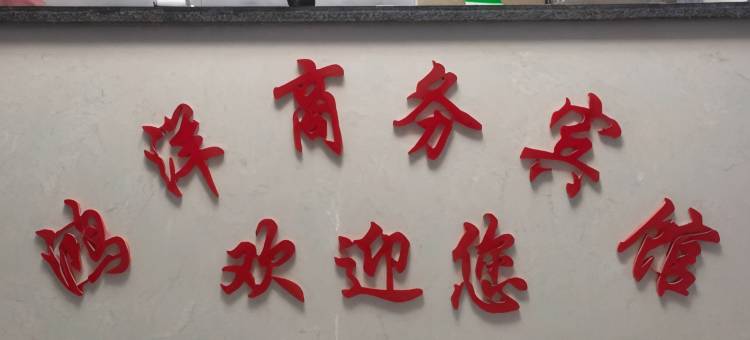 鸿洋商务宾馆
欢迎您